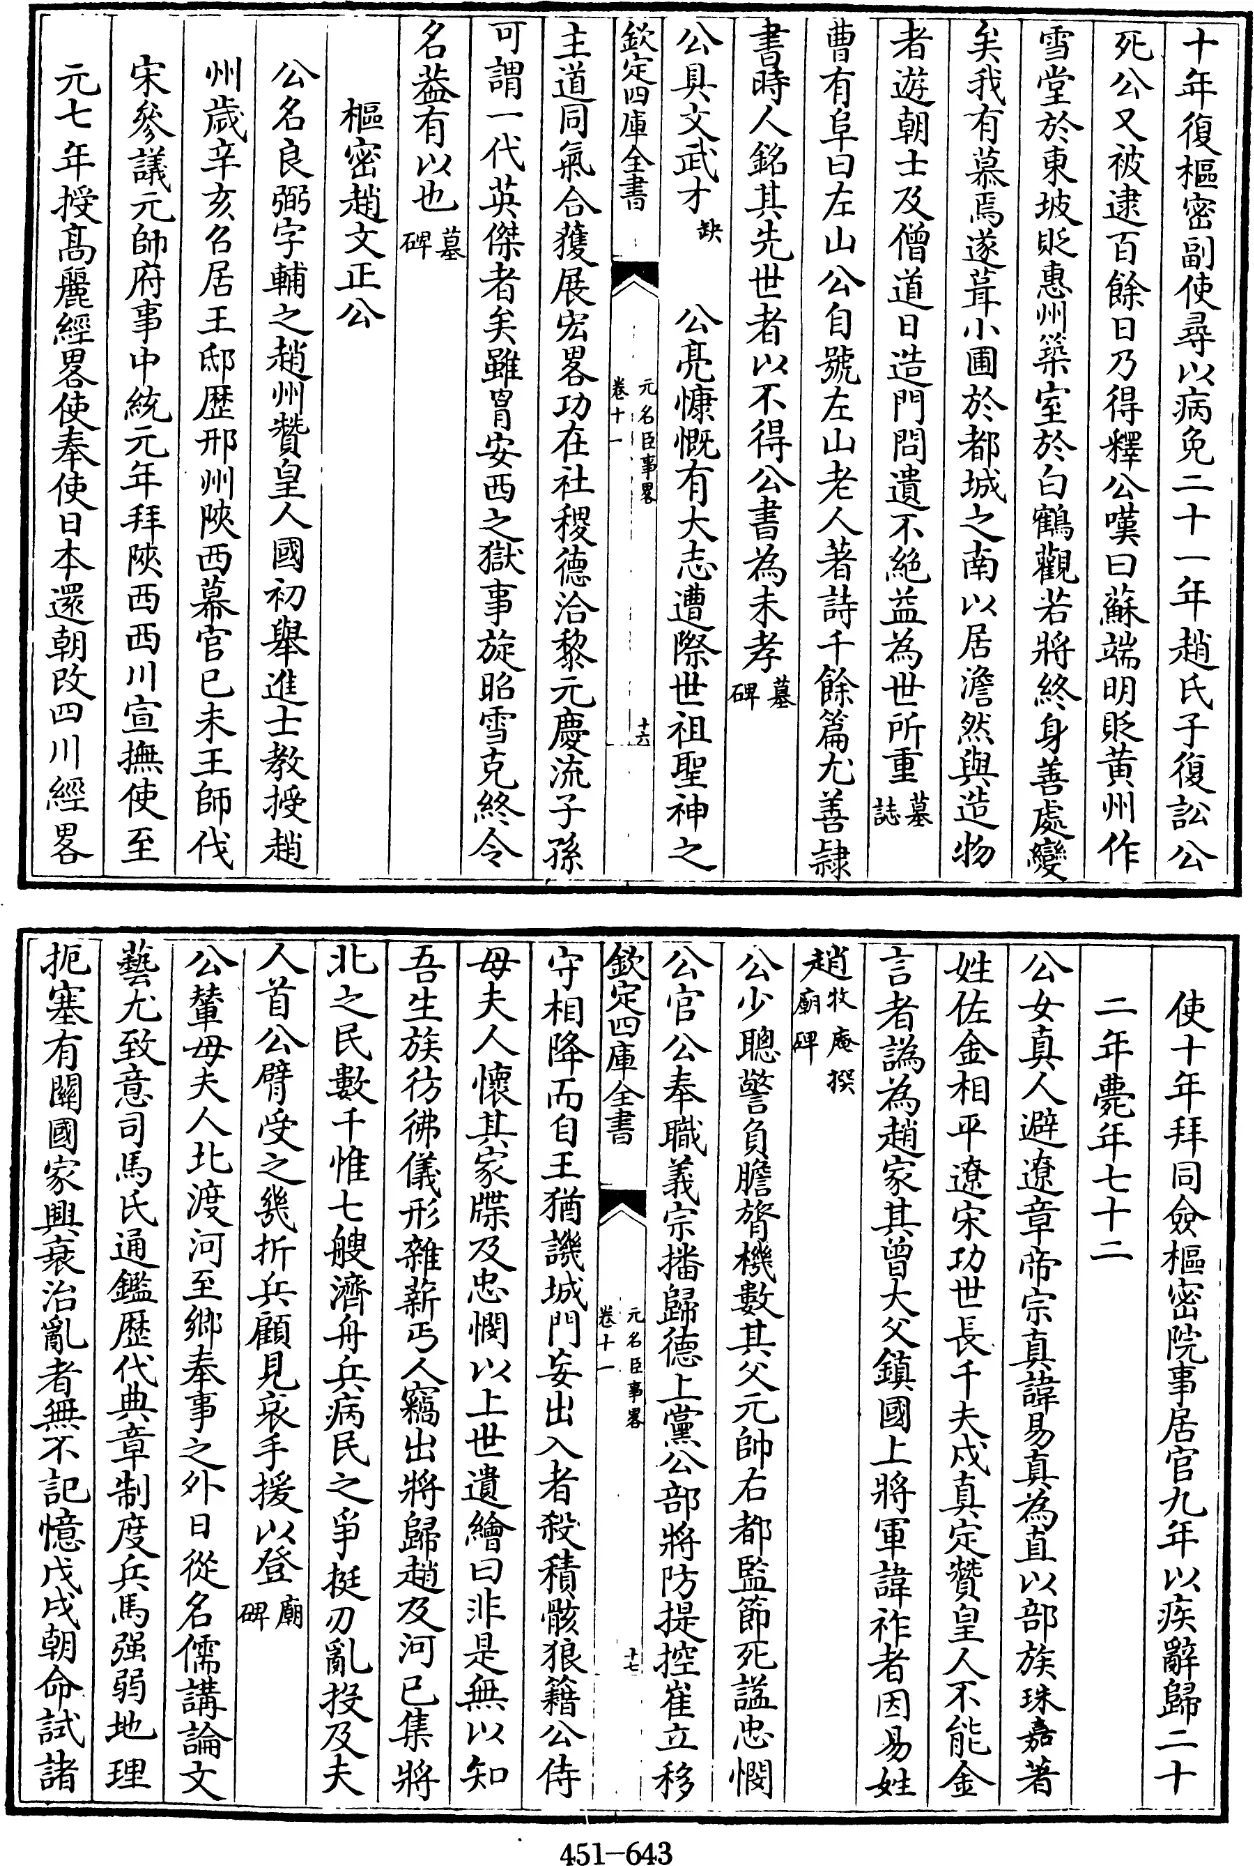 十年復樞密副使尋以病免二十一年趙氏子復訟公
死公又被逮百餘日乃得釋公嘆曰蘇端明貶黄州作
雪堂於東坡貶惠州築室於白鶴觀若將終身善處變
矣我有慕焉遂葺小圃於都城之南以居澹然與造物
者遊朝士及僧道日造門問遺不絶益為世所重墓誌
曹有阜曰左山公自號左山老人著詩千餘篇尤善隷
書時人銘其先世者以不得公書為未孝墓碑
公具文武才缺 公亮慷慨有大志遭際世祖聖神之
欽定四庫全書 元名臣事畧 卷十一 十六
主道同氣合獲展宏畧功在社稷德洽黎元慶流子孫
可謂一代英傑者矣雖冑安西之獄事旋昭雪克終令
名葢有以也墓碑
樞密趙文正公
公名良弼字輔之趙州贊皇人國初舉進士教授趙
州歲辛亥召居王邸歷邢州陝西幕官己未王師伐
宋參議元帥府事中統元年拜陝西西川宣撫使至
元七年授髙麗經畧使奉使日本還朝改四川經畧
使十年拜同僉樞密院事居官九年以疾辭歸二十
二年薨年七十二
公女真人避遼章帝宗真諱易真為直以部族珠嘉著
姓佐金相平遼宋功世長千夫戍真定贊皇人不能金
言者譌為趙家其曾大父鎮國上將軍諱祚者因易姓
趙牧庵撰廟碑
公少聰警負膽膂機數其父元帥右都監節死謚忠憫
公官公奉職義宗播歸德上黨公部將防提控崔立移
欽定四庫全書 元名臣事畧 卷十一 十七
守相降而自王猶譏城門妄出入者殺積骸狼籍公侍
母夫人懷其家牒及忠憫以上世遺繪曰非是無以知
吾生族彷彿儀形雜薪丐人竊出將歸趙及河已集將
北之民數千惟七艘濟舟兵病民之爭挺刃亂投及夫
人首公臂受之幾折兵顧見哀手援以登廟碑
公輦母夫人北渡河至鄉奉事之外日從名儒講論文
藝尤致意司馬氏通鑑歷代典章制度兵馬强弱地理
扼塞有闗國家興衰治亂者無不記憶戊戌朝命試諸
451-643